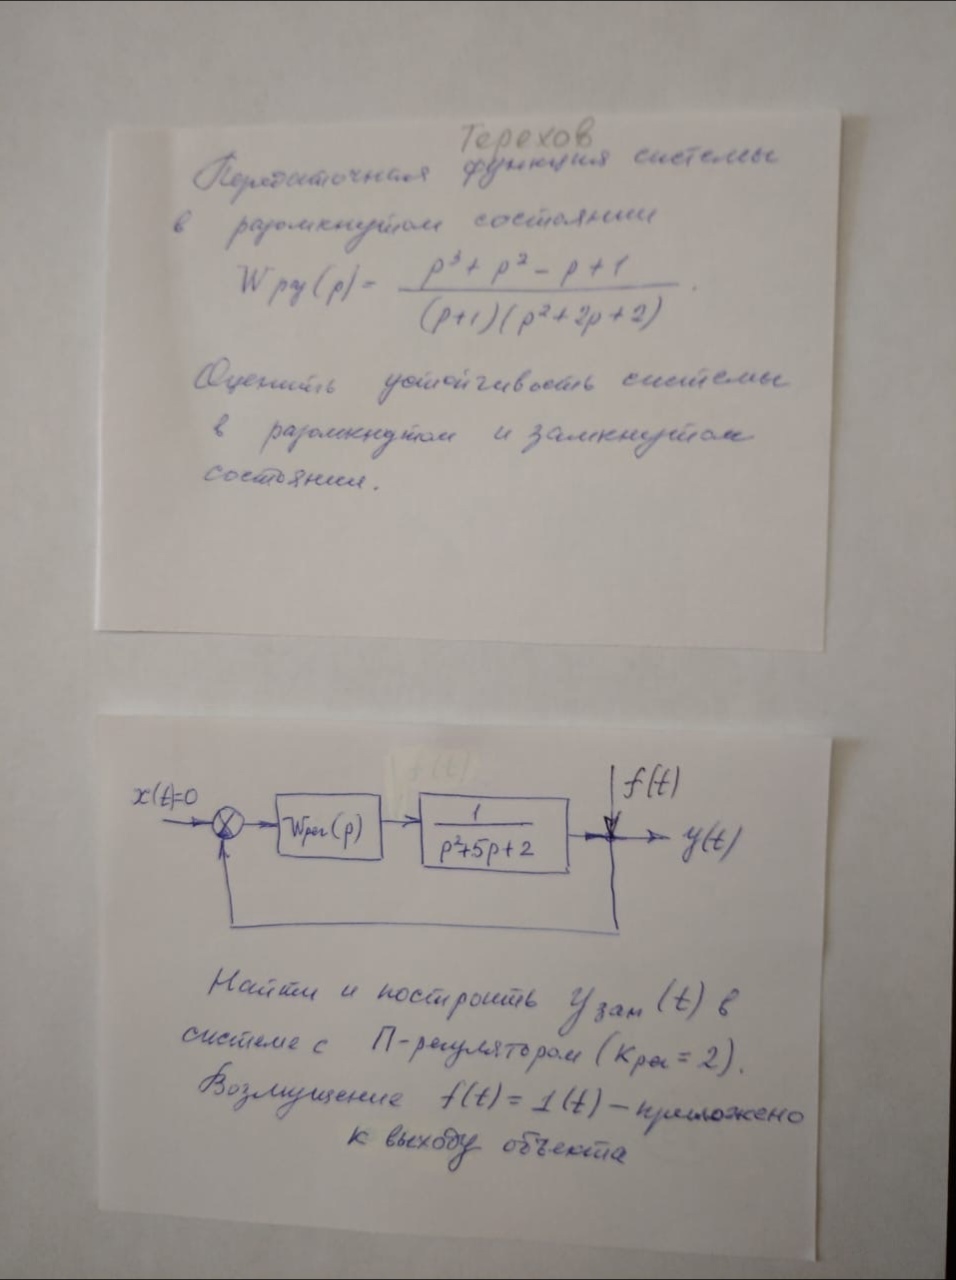 Терехов
Передаточная функция системы
в разомкнутом состоянии
Wру(p) = p³ + p² - p + 1
(p+1)(p²+2p+2) .
Оценить устойчивость системы
в разомкнутом и замкнутом
состоянии.
f(t)
f(t)
x(t)=0
Wрег(p)
1
p²+5p+2
y(t)
Найти и построить Yзам(t) в
системе с П-регулятором (Kрег = 2).
Возмущение f(t) = 1(t) – приложено
к выходу объекта